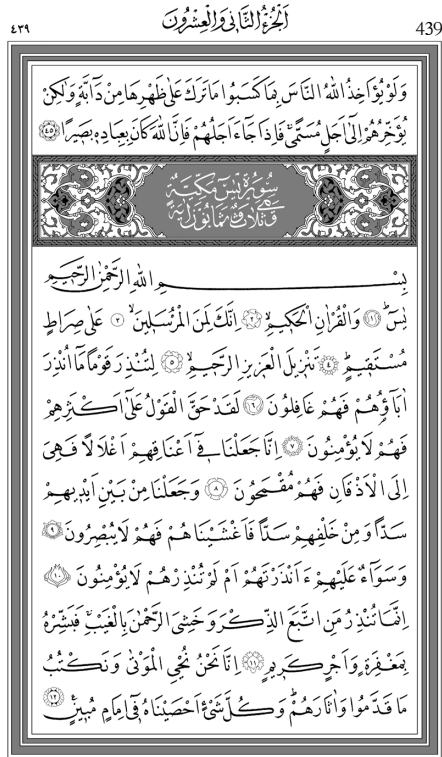 ٤٣٩ اَلْجُزْءُ الثَّانِي وَالْعِشْرُونَ 439
وَلَوْ يُؤَاخِذُ اللّٰهُ النَّاسَ بِمَا كَسَبُوا مَا تَرَكَ عَلٰى ظَهْرِهَا مِنْ دَٓابَّةٍ وَلٰكِنْ
يُؤَخِّرُهُمْ اِلٰٓى اَجَلٍ مُسَمًّىۚ فَاِذَا جَٓاءَ اَجَلُهُمْ فَاِنَّ اللّٰهَ كَانَ بِعِبَادِهٖ بَصٖيرًا ﴿٤٥﴾
سُورَةُ يٰسٓ مَكِّيَّةٌ
وَهِيَ ثَلَاثٌ وَثَمَانُونَ اٰيَةً
بِسْمِ اللّٰهِ الرَّحْمٰنِ الرَّحٖيمِ
يٰسٓۜ ﴿١﴾ وَالْقُرْاٰنِ الْحَكٖيمِۙ ﴿٢﴾ اِنَّكَ لَمِنَ الْمُرْسَلٖينَۙ ﴿٣﴾ عَلٰى صِرَاطٍ
مُسْتَقٖيمٍۜ ﴿٤﴾ تَنْزٖيلَ الْعَزٖيزِ الرَّحٖيمِۙ ﴿٥﴾ لِتُنْذِرَ قَوْمًا مَٓا اُنْذِرَ
اٰبَٓاؤُهُمْ فَهُمْ غَافِلُونَ ﴿٦﴾ لَقَدْ حَقَّ الْقَوْلُ عَلٰٓى اَكْثَرِهِمْ
فَهُمْ لَا يُؤْمِنُونَ ﴿٧﴾ اِنَّا جَعَلْنَا فٖٓي اَعْنَاقِهِمْ اَغْلَالًا فَهِيَ
اِلَى الْاَذْقَانِ فَهُمْ مُقْمَحُونَ ﴿٨﴾ وَجَعَلْنَا مِنْ بَيْنِ اَيْدٖيهِمْ
سَدًّا وَمِنْ خَلْفِهِمْ سَدًّا فَاَغْشَيْنَاهُمْ فَهُمْ لَا يُبْصِرُونَ ﴿٩﴾
وَسَوَٓاءٌ عَلَيْهِمْ ءَاَنْذَرْتَهُمْ اَمْ لَمْ تُنْذِرْهُمْ لَا يُؤْمِنُونَ ﴿١٠﴾
اِنَّمَا تُنْذِرُ مَنِ اتَّبَعَ الذِّكْرَ وَخَشِيَ الرَّحْمٰنَ بِالْغَيْبِۚ فَبَشِّرْهُ
بِمَغْفِرَةٍ وَاَجْرٍ كَرٖيمٍ ﴿١١﴾ اِنَّا نَحْنُ نُحْيِ الْمَوْتٰى وَنَكْتُبُ
مَا قَدَّمُوا وَاٰثَارَهُمْۜ وَكُلَّ شَيْءٍ اَحْصَيْنَاهُ فٖٓي اِمَامٍ مُبٖينٍ۟ ﴿١٢﴾